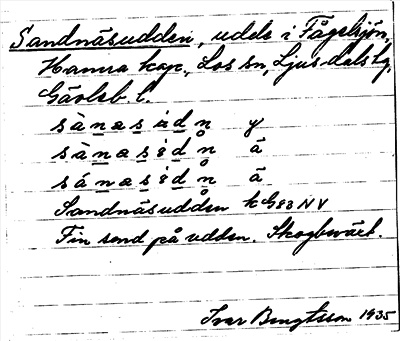 Sandnäsudden, udde i Fågelsjön,
Hamra kap., Los sn, Ljusdals tg,
Gävleb. l.
sànæsidn y
sànæsidn å
sánæsidn å
Sandnäsudden kG83NV
Fin sand på udden. Skogbeväxt.
Ivar Bengtsson 1935